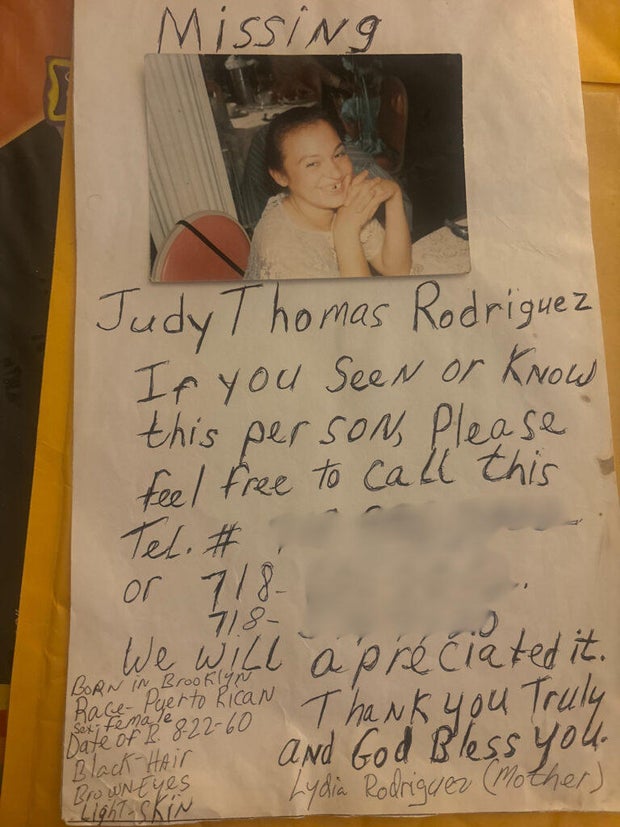 Missing
Judy Thomas Rodriguez
If you Seen or Know
this person, Please
feel free to call this
Tel. #
or 718-
718-
We will apréciated it.
Thank you Truly
and God Bless you.
Lydia Rodriguez (Mother)
Born in Brooklyn
Race- Puerto Rican
Sex, Female
Date of B 8-22-60
Black-Hair
Brown Eyes
Light-Skin